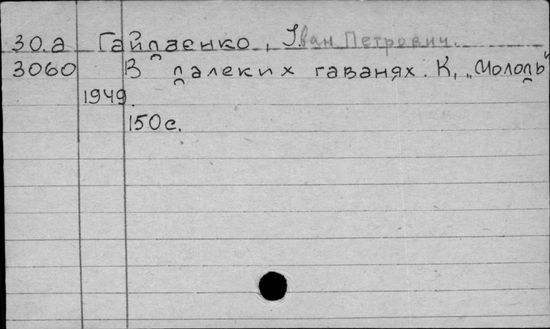 30.а Гайдаенко, Іван Петрович.
3060 В далеких гаванях. К, „Молодь"
1949.
150с.